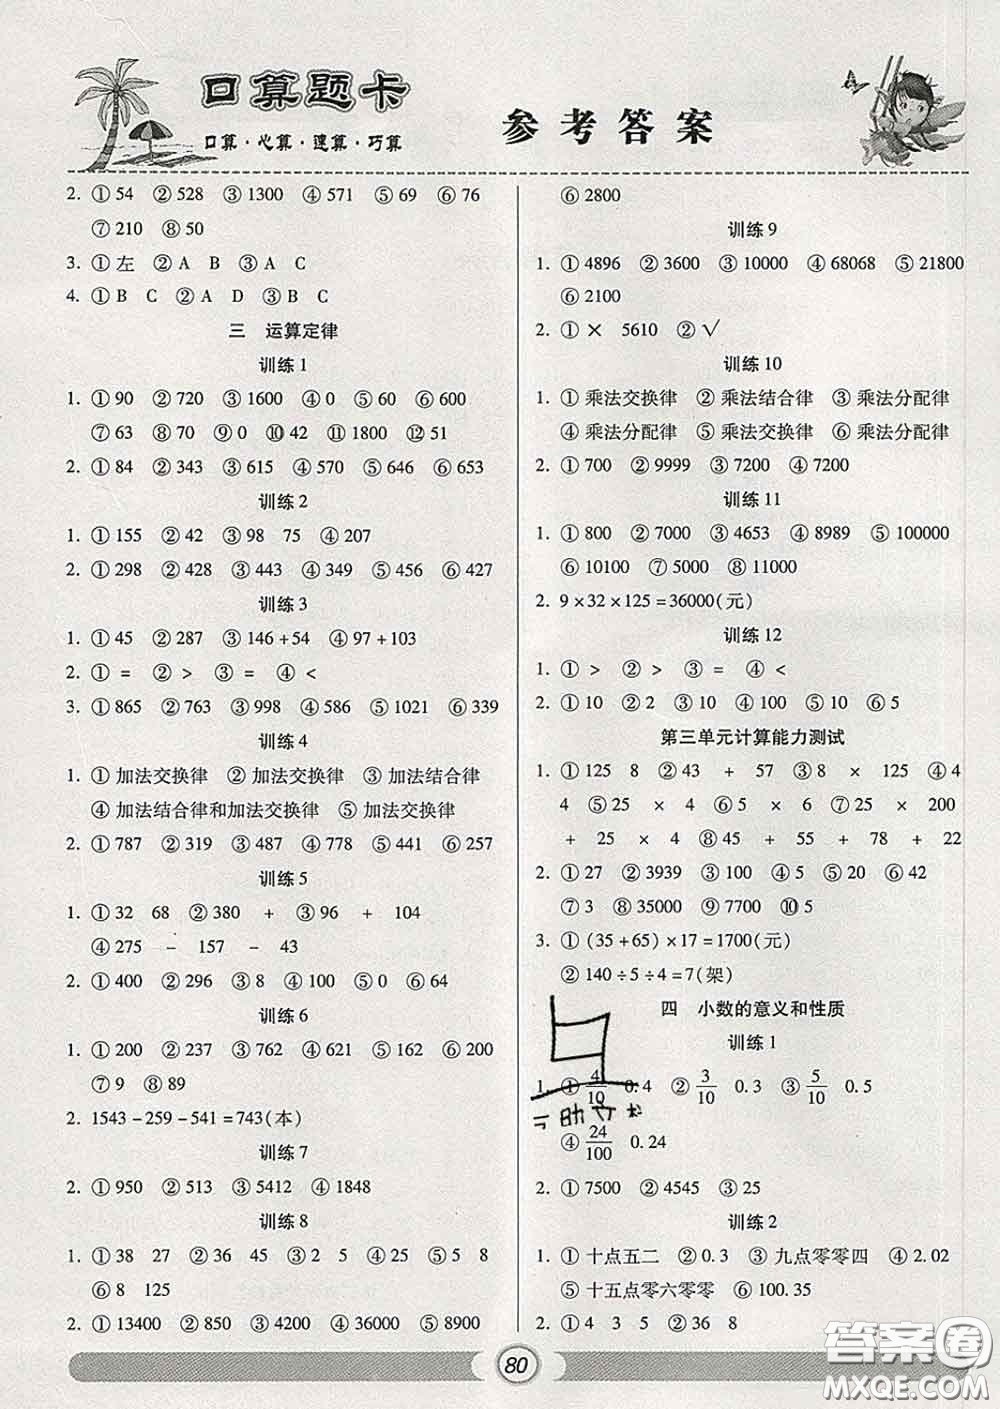 口算题卡
口算·心算·速算·巧算
参考答案
2. ①54 ②528 ③1300 ④571 ⑤69 ⑥76
⑦210 ⑧50
3. ①左 ②A B ③A C
4. ①B C ②A D ③B C
三 运算定律
训练1
1. ①90 ②720 ③1600 ④0 ⑤60 ⑥600
⑦63 ⑧70 ⑨0 ⑩42 ⑪1800 ⑫51
2. ①84 ②343 ③615 ④570 ⑤646 ⑥653
训练2
1. ①155 ②42 ③98 75 ④207
2. ①298 ②428 ③443 ④349 ⑤456 ⑥427
训练3
1. ①45 ②287 ③146+54 ④97+103
2. ①= ②> ③= ④<
3. ①865 ②763 ③998 ④586 ⑤1021 ⑥339
训练4
1. ①加法交换律 ②加法交换律 ③加法结合律
④加法结合律和加法交换律 ⑤加法交换律
2. ①787 ②319 ③487 ④778 ⑤441 ⑥257
训练5
1. ①32 68 ②380 + ③96 + 104
④275 - 157 - 43
2. ①400 ②296 ③8 ④100 ⑤0 ⑥64
训练6
1. ①200 ②237 ③762 ④621 ⑤162 ⑥200
⑦9 ⑧89
2. 1543-259-541=743(本)
训练7
2. ①950 ②513 ③5412 ④1848
训练8
1. ①38 27 ②36 45 ③2 ④8 ⑤5 8
⑥8 125
2. ①13400 ②850 ③4200 ④3600 ⑤8900
⑥2800
训练9
1. ①4896 ②3600 ③10000 ④68068 ⑤21800
⑥2100
2. ①× 5610 ②√
训练10
1. ①乘法交换律 ②乘法结合律 ③乘法分配律
④乘法分配律 ⑤乘法交换律 ⑥乘法分配律
2. ①700 ②9999 ③7200 ④7200
训练11
1. ①800 ②7000 ③4653 ④8989 ⑤100000
⑥10100 ⑦5000 ⑧11000
2. 9×32×125=36000(元)
训练12
1. ①> ②> ③= ④<
2. ①10 ②2 ③10 ④100 ⑤10 ⑥5
第三单元计算能力测试
1. ①125 8 ②43 + 57 ③8 × 125 ④4
4 ⑤25 × 4 ⑥5 × 6 ⑦25 × 200
+ 25 × 4 ⑧45 + 55 + 78 + 22
2. ①27 ②3939 ③100 ④5 ⑤20 ⑥42
⑦3 ⑧35000 ⑨7700 ⑩5
3. ①(35+65)×17=1700(元)
②140÷5÷4=7(架)
四 小数的意义和性质
训练1
1. ①4/10 0.4 ②3/10 0.3 ③5/10 0.5
④24/100 0.24
2. ①7500 ②4545 ③25
训练2
1. ①十点五二 ②0.3 ③九点零零四 ④2.02
⑤十五点零六零零 ⑥100.35
2. ①4 3 5 ②36 8
80
答案圈
MXQE.COM